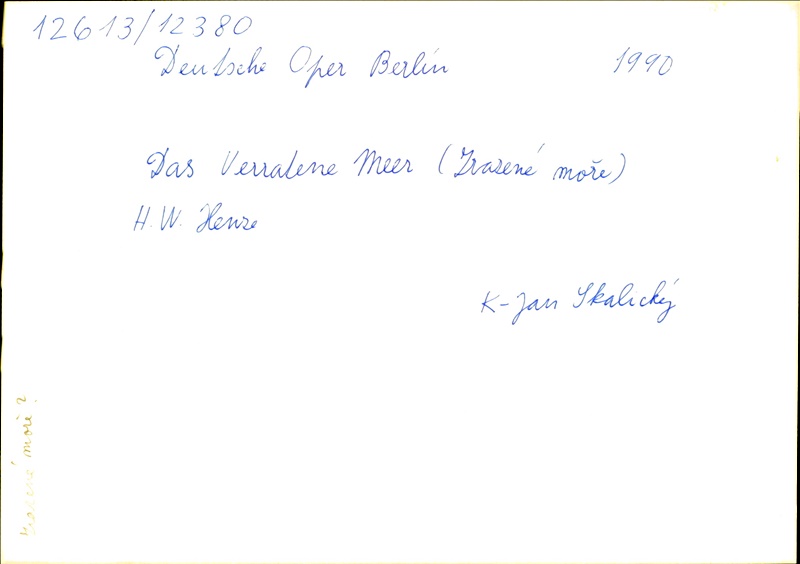 12613/12380
Deutsche Oper Berlin 1990
Das Verratene Meer (Zrazené moře)
H. W. Henze
K-Jan Skalický
moře?